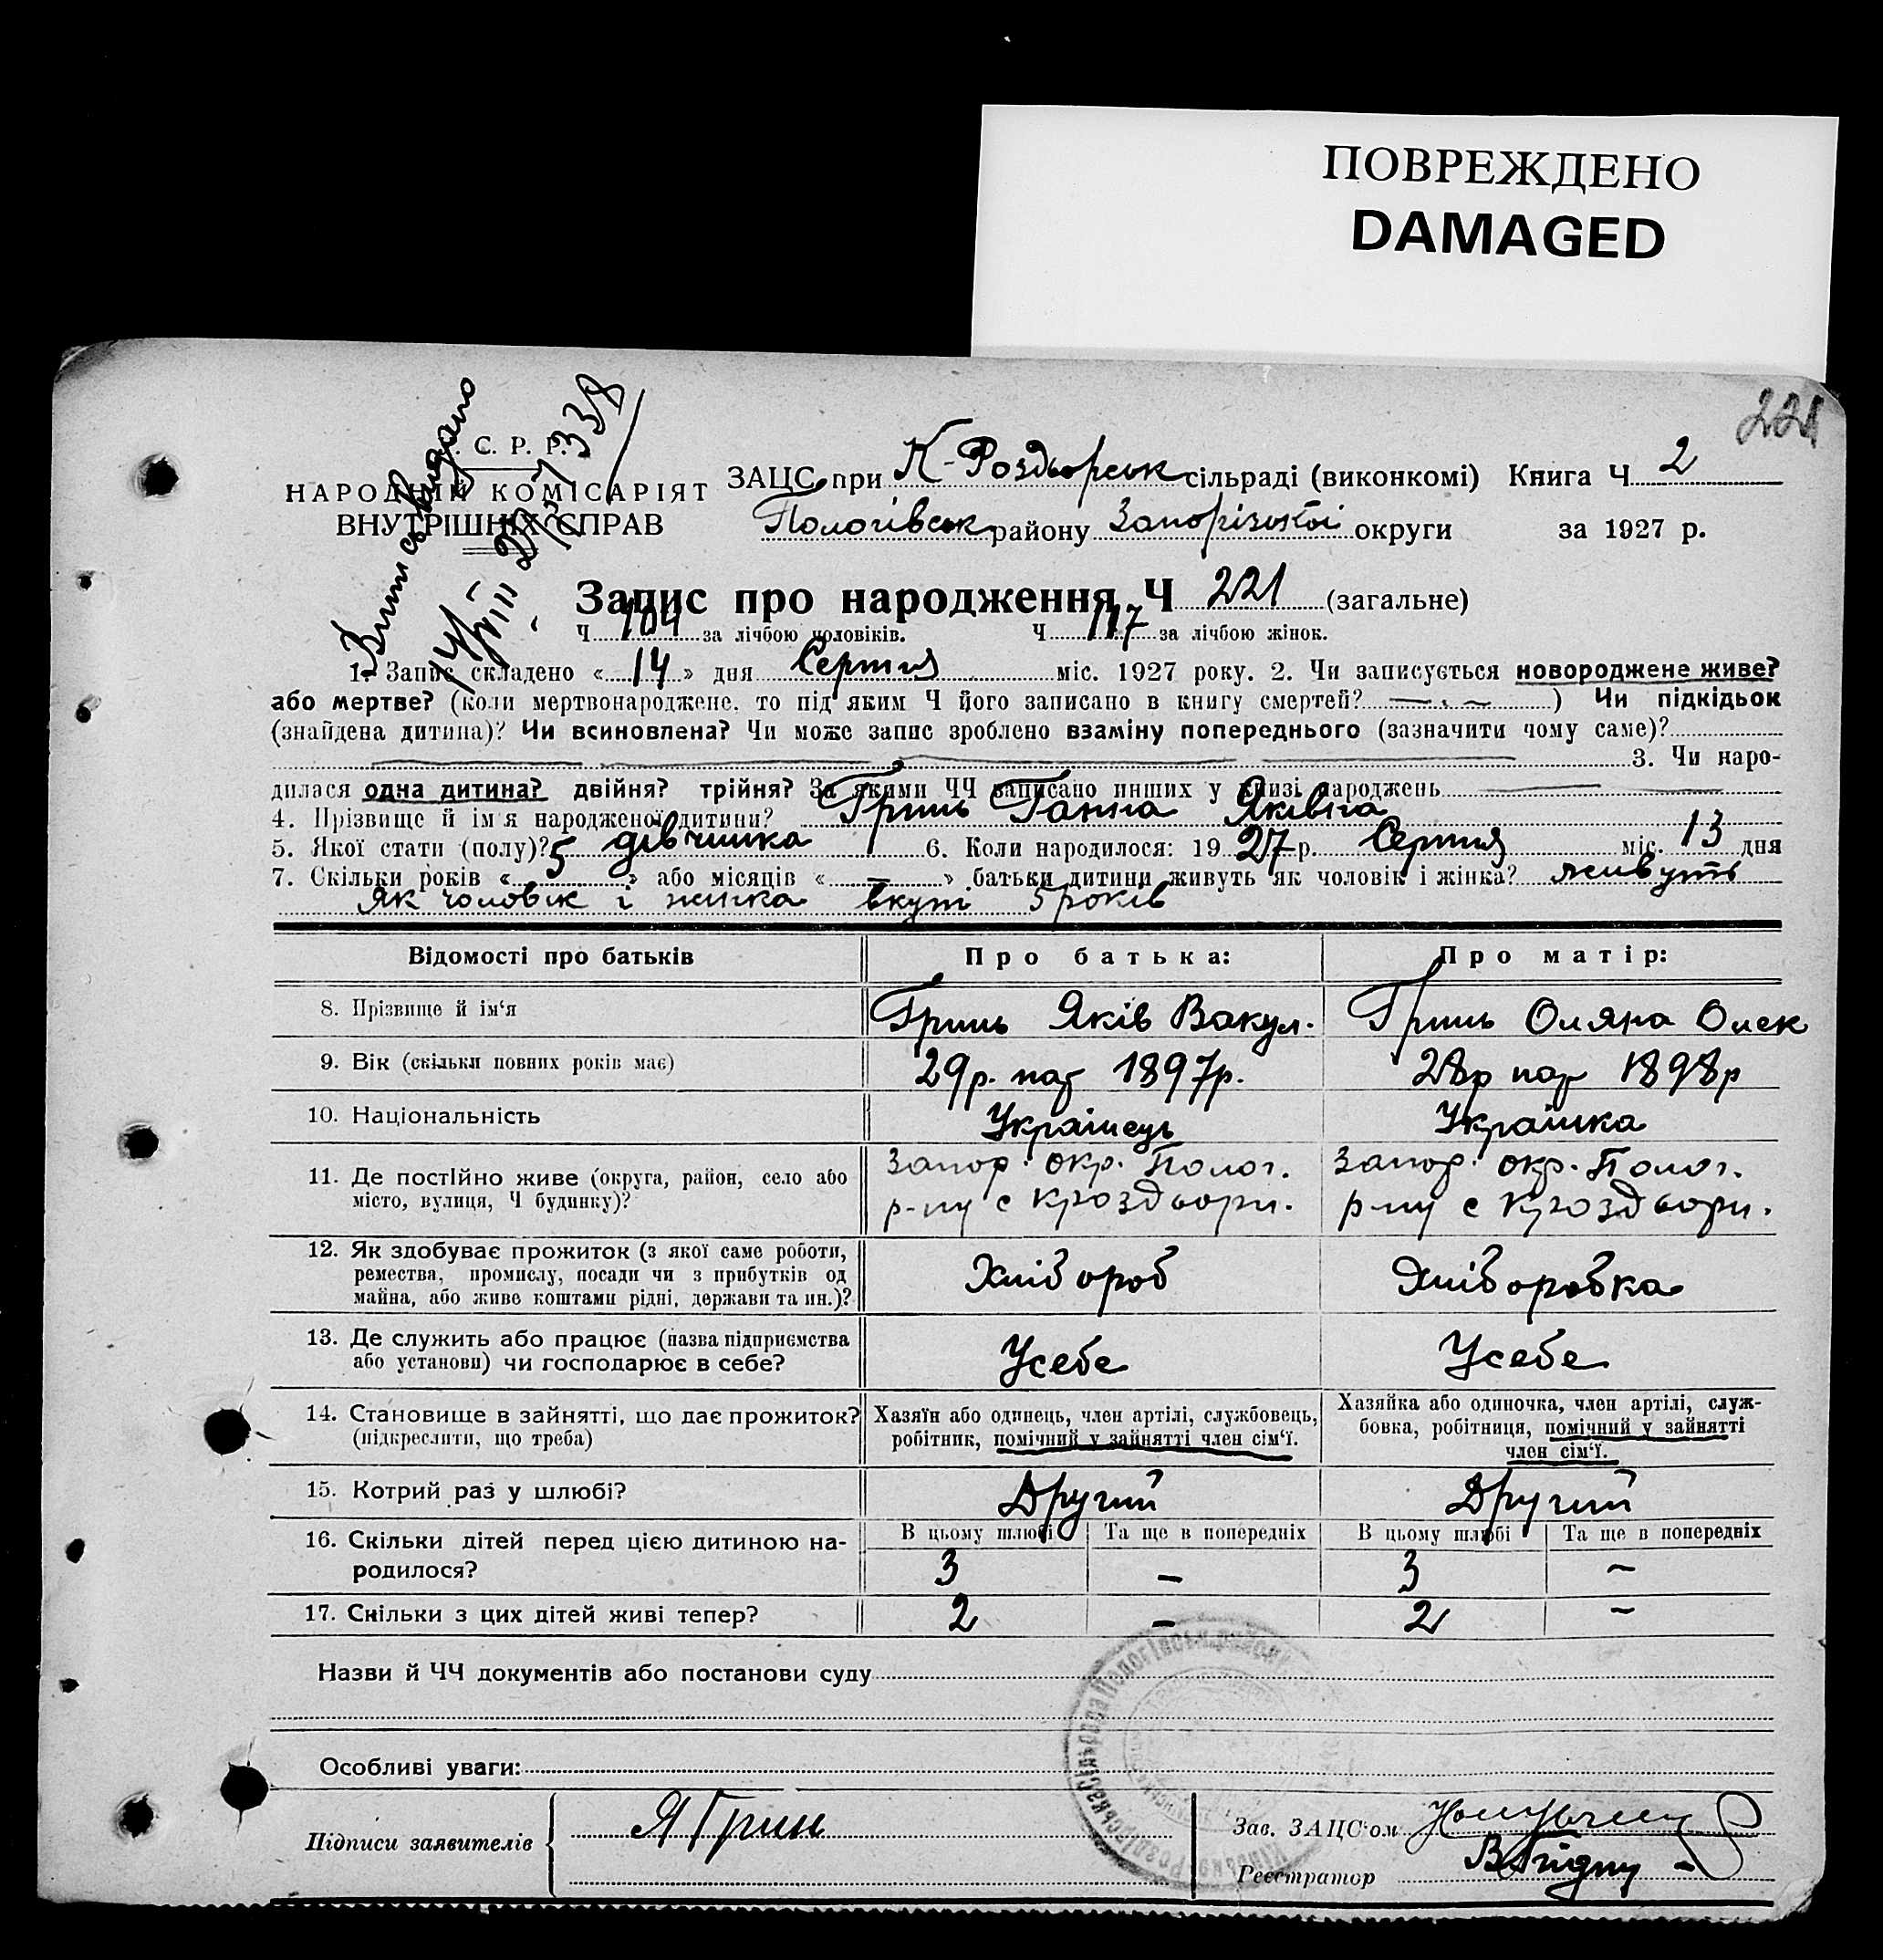 ПОВРЕЖДЕНО
DAMAGED
221
С. Р. Р.
НАРОДНІЙ КОМІСАРІЯТ
ВНУТРІШНІХ СПРАВ
Виписъ видано
ЗАЦС при К-Роздорськ сільраді (виконкомі) Книга Ч 2
Пологівськ району Запорізької округи за 1927 р.
Запис про народження Ч 221 (загальне)
Ч 104 за лічбою чоловіків. Ч 117 за лічбою жінок.
1. Запис складено « 14 » дня Серпня міс. 1927 року. 2. Чи записується новороджене живе?
або мертве? (коли мертвонароджене, то під яким Ч його записано в книгу смертей? — . — ) Чи підкідьок
(знайдена дитина)? Чи всиновлена? Чи може запис зроблено взаміну попереднього (зазначити чому саме)?
3. Чи наро-
дилася одна дитина? двійня? трійня? За якими ЧЧ записано инших у книзі народжень
4. Прізвище й ім'я народженої дитини? Гринь Ганна Яківна
5. Якої стати (полу)? дівчинка 6. Коли народилося: 19 27 р. Серпня міс. 13 дня
7. Скільки років « 5 » або місяців « — » батьки дитини живуть як чоловік і жінка? живуть
як чоловік і жинка вкуті 5 років
Відомості про батьків Про батька: Про матір:
8. Прізвище й ім'я Гринь Яків Вакул. Гринь Оляна Олек
9. Вік (скільки повних років має) 29р. нар 1897р. 28р нар 1898р
10. Національність Українець Українка
11. Де постійно живе (округа, район, село або місто, вулиця, Ч будинку)? Запор. окр. Полог. Запор. окр. Полог.
р-ну с Кроздьори. р-ну с Кроздьори.
12. Як здобуває прожиток (з якої саме роботи,
ремества, промислу, посади чи з прибутків од
майна, або живе коштами рідні, держави та ин.)? Хлібороб Хліборобка
13. Де служить або працює (назва підприємства
або установи) чи господарює в себе? Усебе Усебе
14. Становище в зайнятті, що дає прожиток?
(підкреслити, що треба)
Хазяїн або одинець, член артілі, службовець,
робітник, помічний у зайнятті член сім'ї.
Хазяйка або одиночка, член артілі, служ-
бовка, робітниця, помічний у зайнятті
член сім'ї.
15. Котрий раз у шлюбі? Другий Другий
16. Скільки дітей перед цією дитиною на-
родилося?
В цьому шлюбі Та ще в попередніх В цьому шлюбі Та ще в попередніх
3 – 3 –
17. Скільки з цих дітей живі тепер? 2 – 2 –
Назви й ЧЧ документів або постанови суду
Особливі уваги:
Підписи заявителів Я Грин
Зав. ЗАЦС'ом
Реєстратор